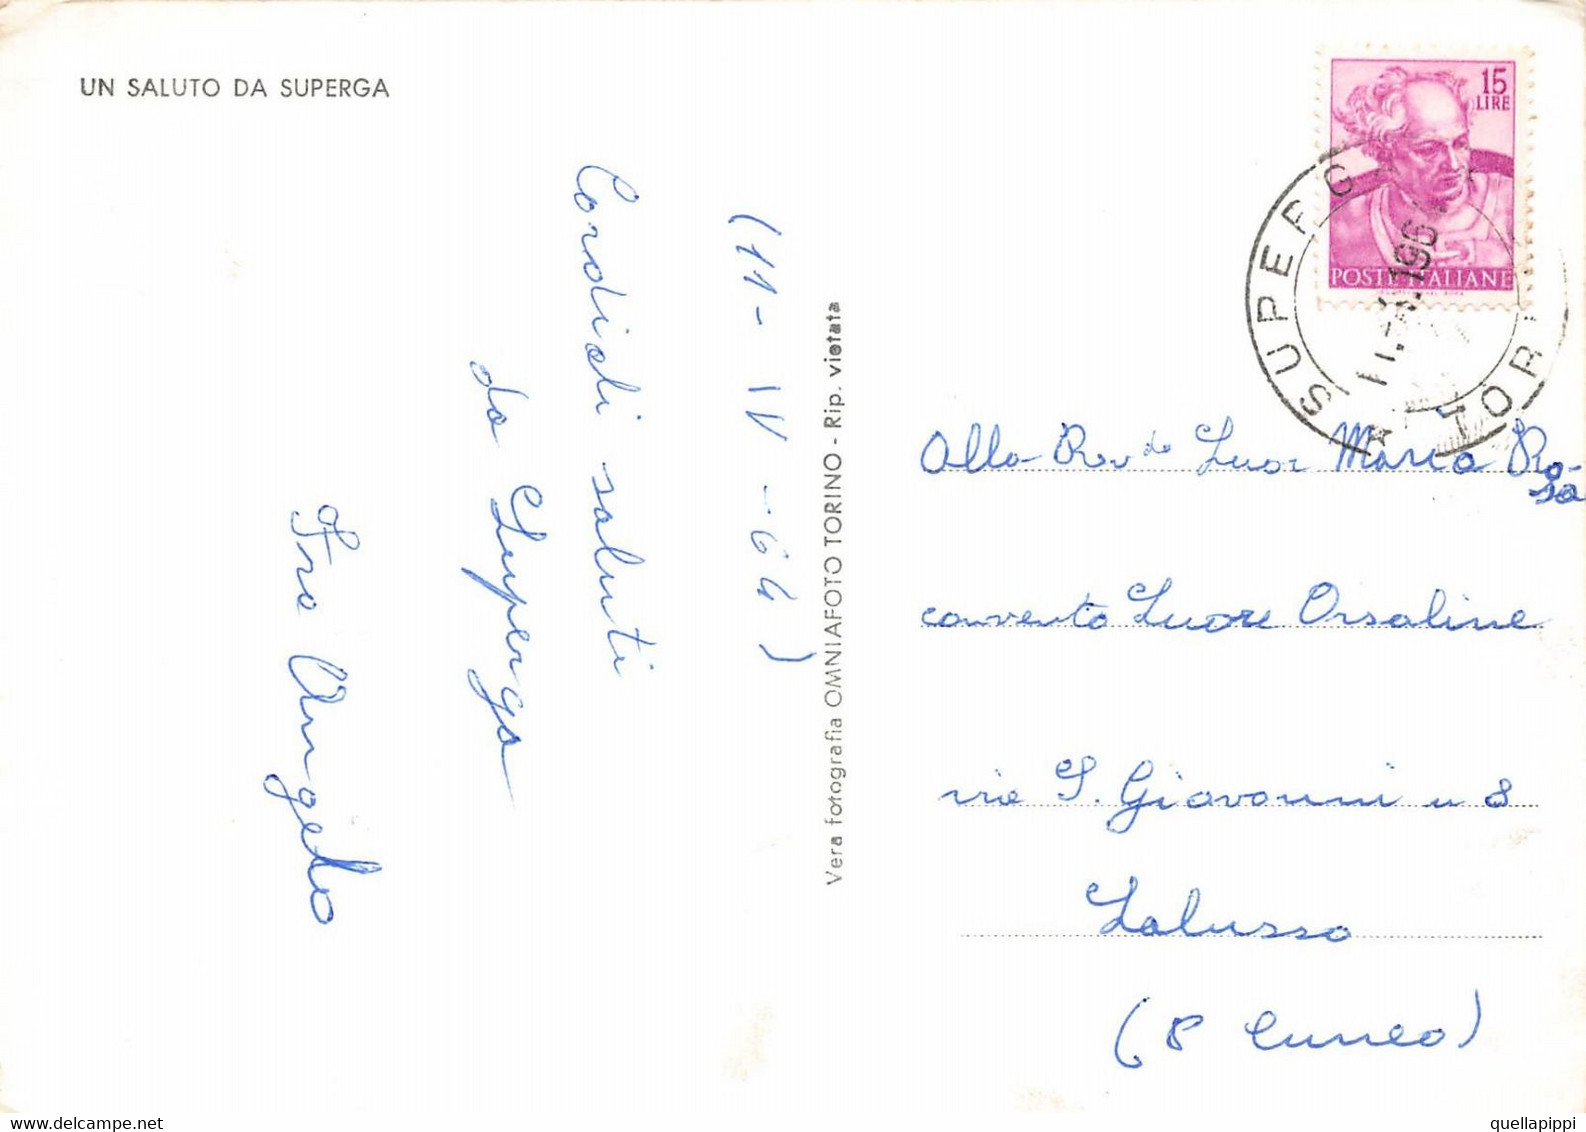 UN SALUTO DA SUPERGA
15
LIRE
POSTE ITALIANE
SUPERG
TOR
11-
196
(11-IV-64)
Cordiali saluti
da Superga
Fra Angelo
Vera fotografia OMNIAFOTO TORINO - Rip. vietata
Alla Rev da Suor Maria Ro-
sa
convento Suore Orsoline
via S. Giovanni n 8
Saluzzo
(P Cuneo)
https://www.delcampe.net
quellapippi